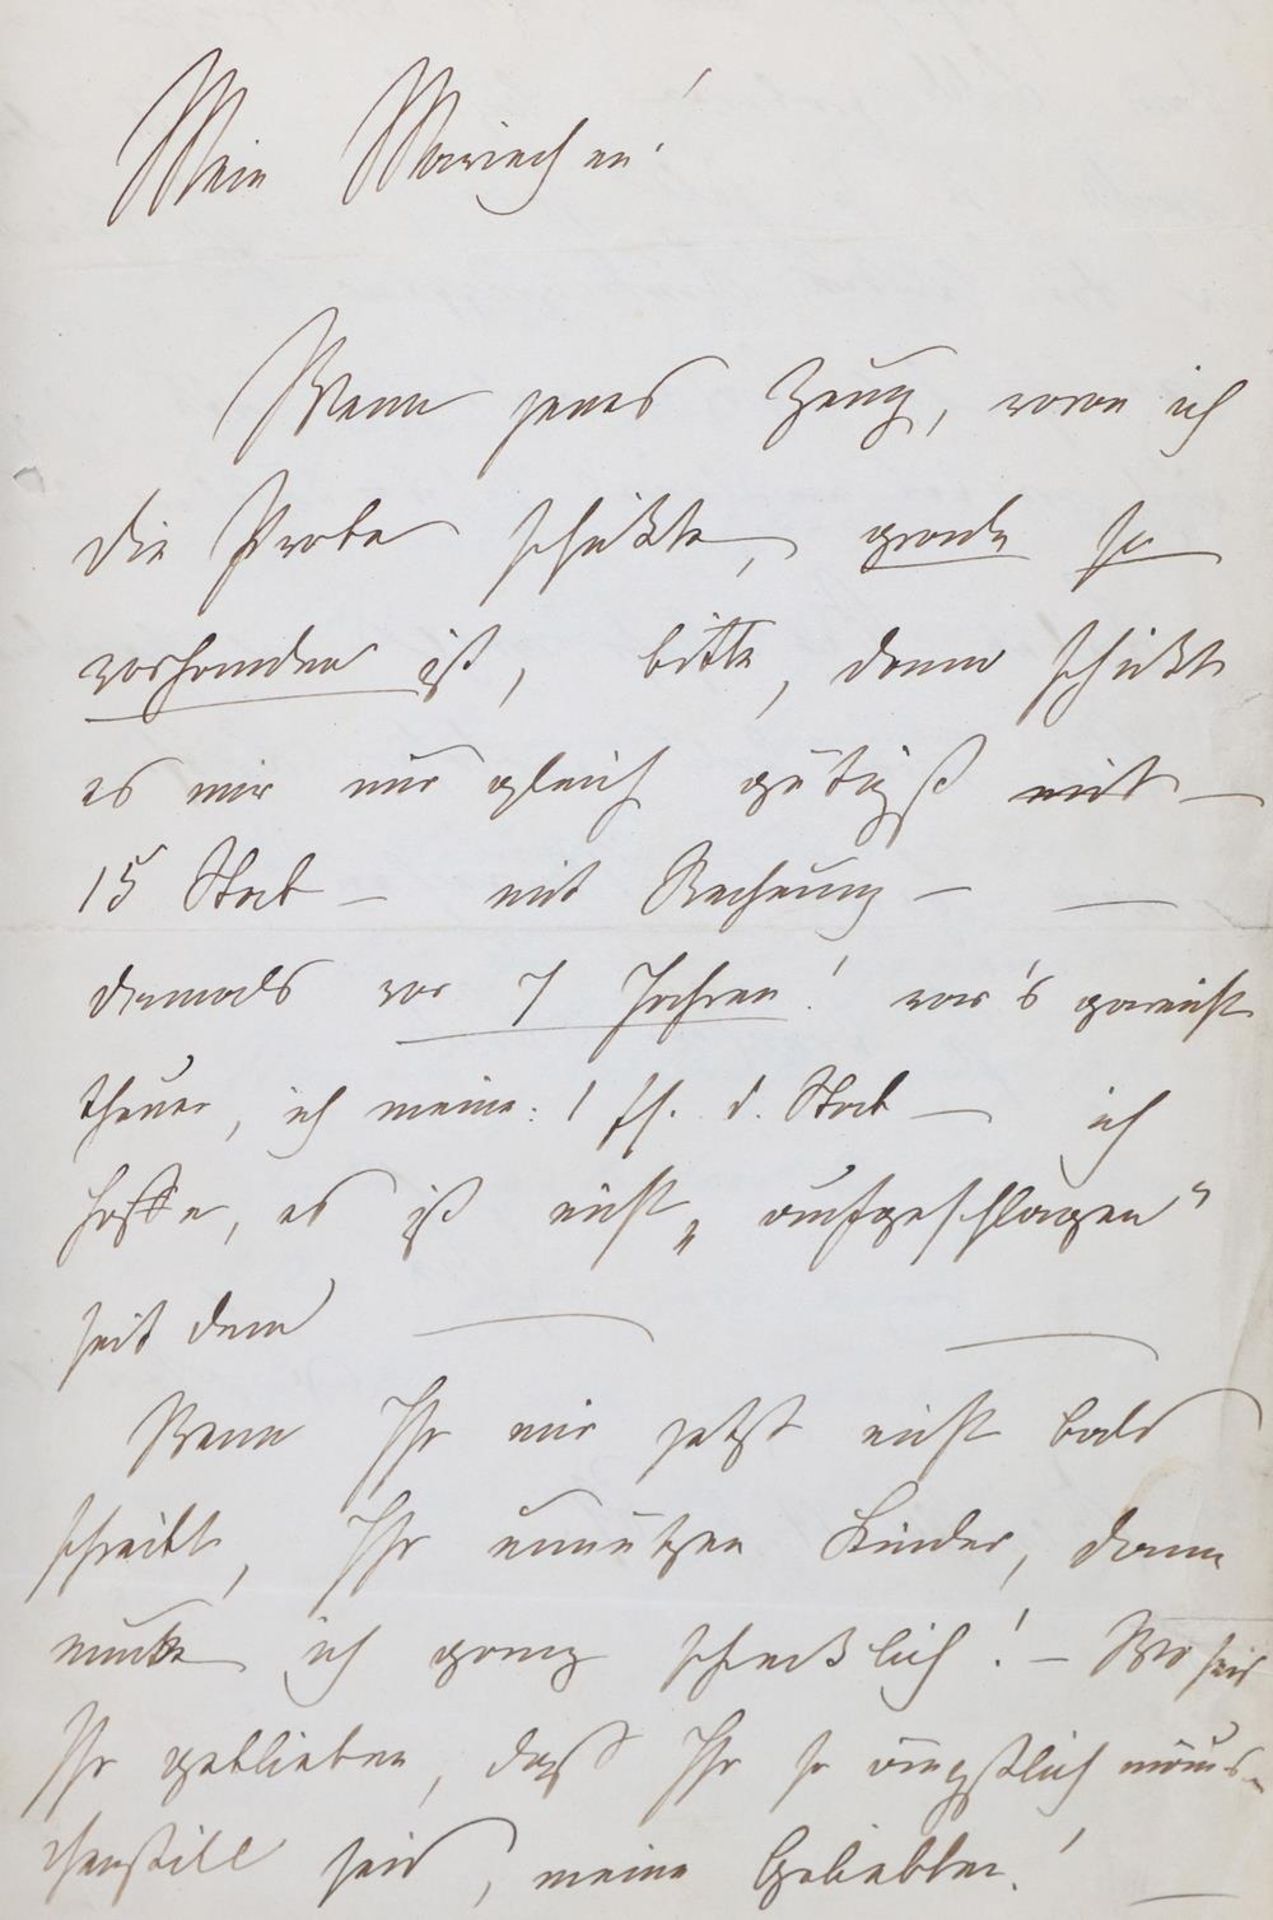 Mein Mariechen!
Wenn jenes Zeug, wovon ich
die Probe schickte, grade so
vorhanden ist, bitte, dann schickt
es mir nur gleich gütigst mit —
15 Stab — mit Rechnung — —
damals vor 7 Jahren! war's garnicht
theuer, ich meine: 1 fl. d. Stab — ich
hoffe, es ist nicht „aufgeschlagen"
seit dem — —
Wenn Ihr mir jetzt nicht bald
schreibt, Ihr unnützen Kinder, dann
mucke ich ganz schrecklich! — Wo seid
Ihr geblieben, daß Ihr so ängstlich mäus-
chenstill seid, meine Geliebten! —